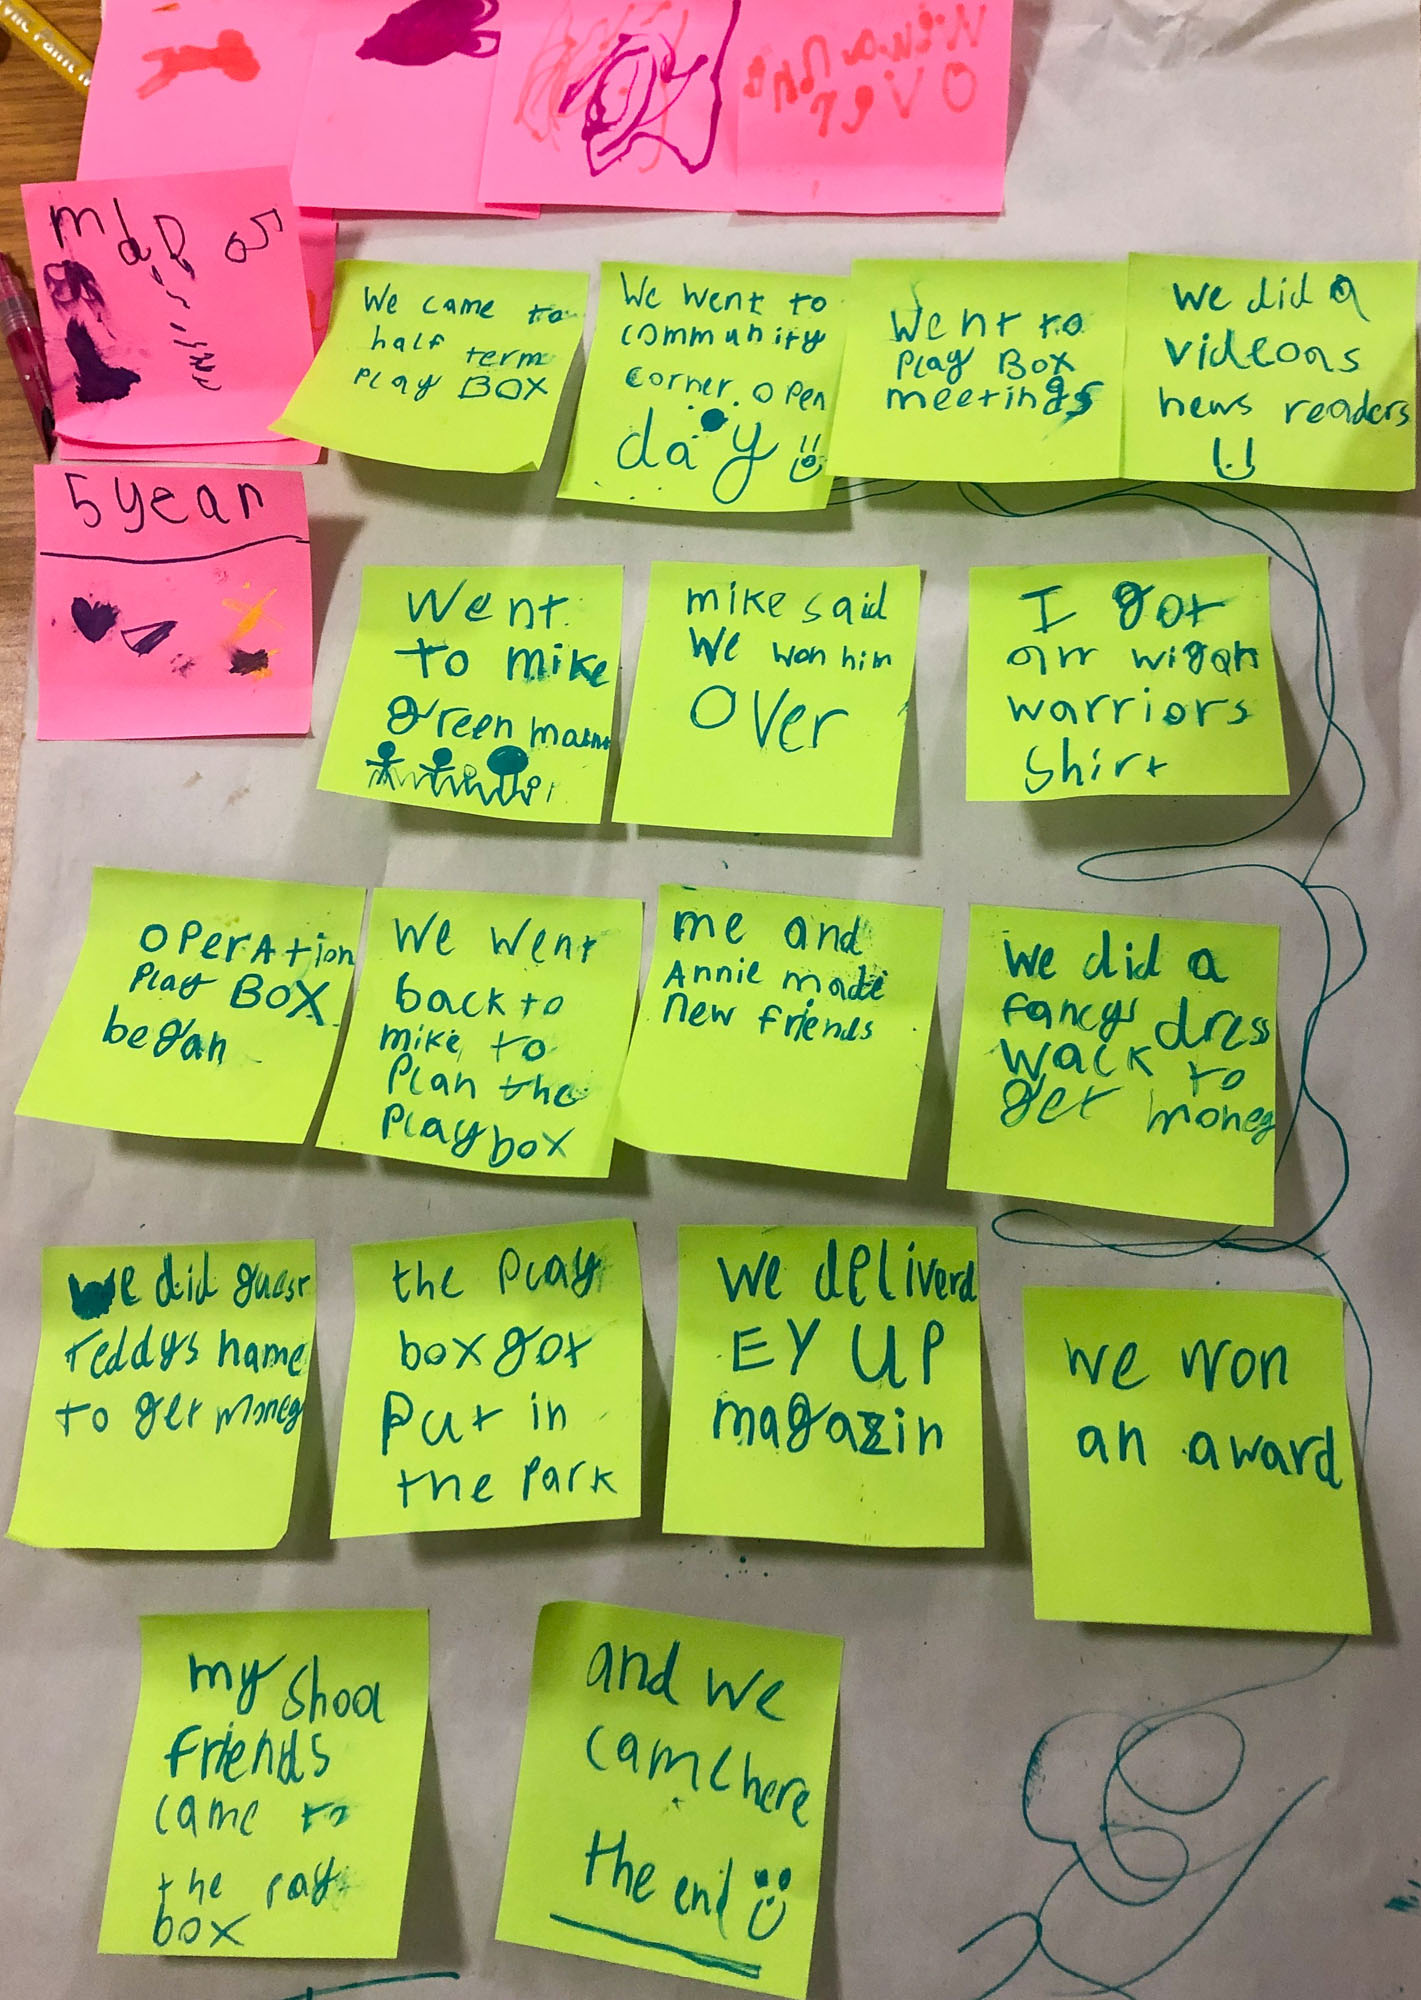 m
5 year
We came to
half term
Play BOX
We went to
community
corner. open
day
Went to
Play BOX
meetings
we did a
videoas
news readers
Went
to mike
green
mike said
We won him
over
I got
wigan
warriors
shirt
OPerAtion
Play BOX
began
We went
back to
mike to
Plan the
Play box
me and
Annie made
new friends
We did a
fancy dress
walk to
get money
We did guest
Teddys name
to get money
the Play
box got
Put in
the Park
We deliverd
EY UP
magazin
we won
an award
my shool
friends
came to
the
box
and we
came here
the end